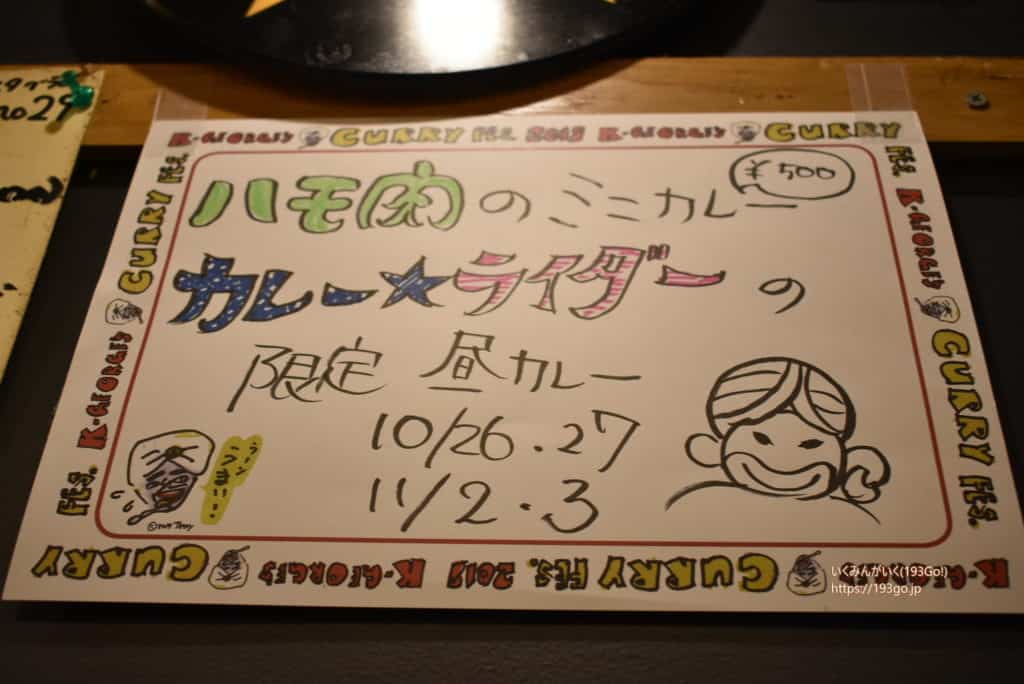 no29
K-GEORGES CURRY FES. 2013 K-GEORGES CURRY FES.
ハモ肉のミニカレー
¥500
カレー★ライダーの
限定 昼カレー
10/26・27
11/2・3
K-GEORGES CURRY FES.
K-GEORGES CURRY FES.
CURRY K-GEORGES 2013 CURRY FES. K-GEORGES
いくみんがいく(193Go!)
https://193go.jp